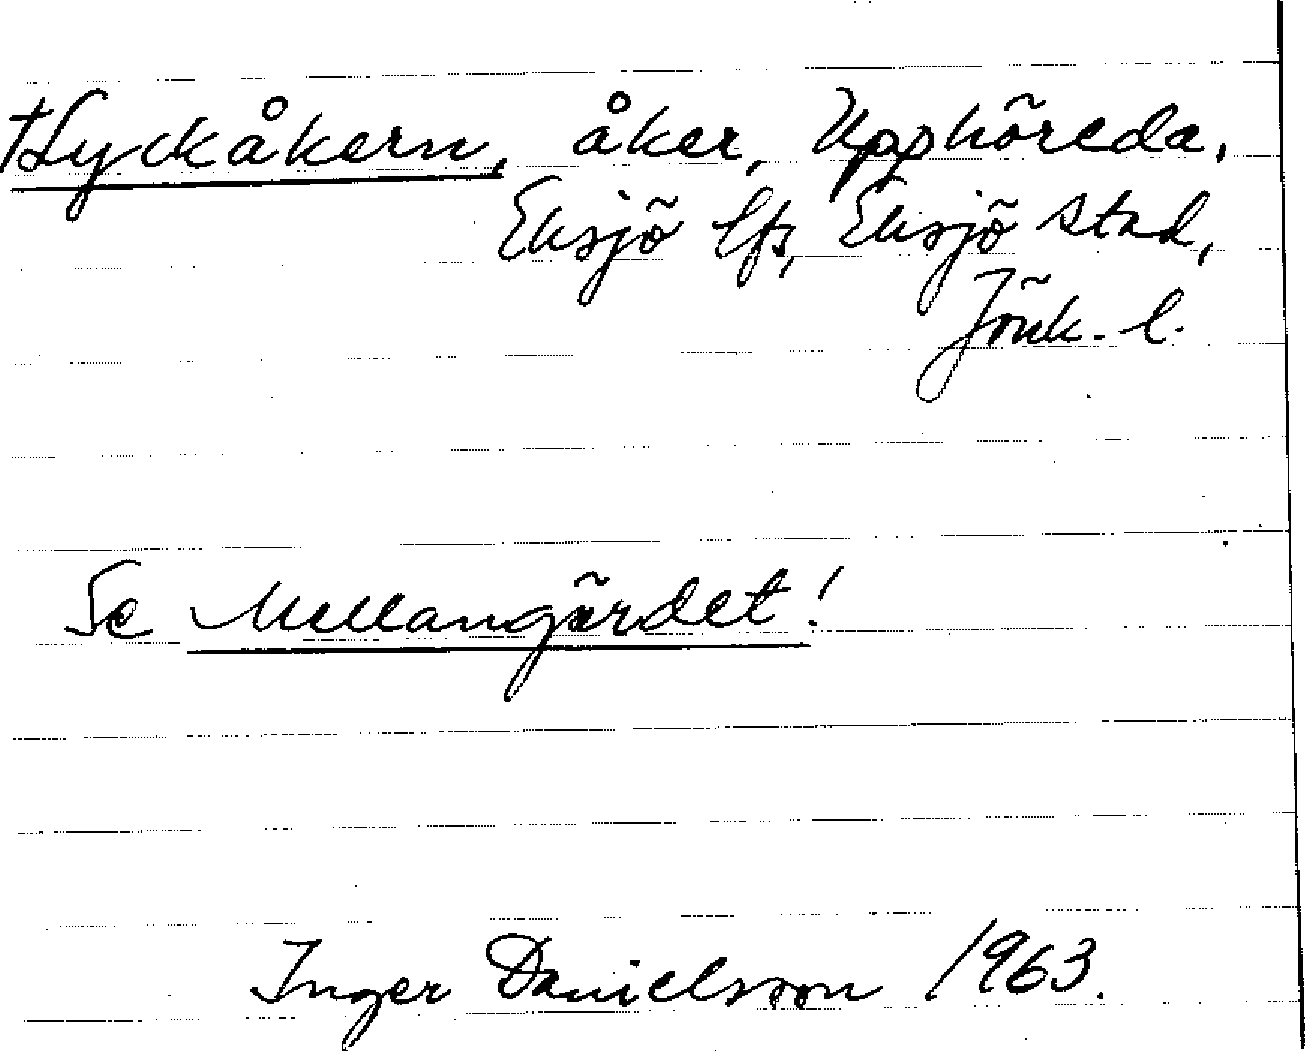 †Lyckåkern, åker, Upphöreda,
Eksjö lfs, Eksjö stad,
Jönk. l.
Se Mellangärdet!
Inger Danielsson 1963.